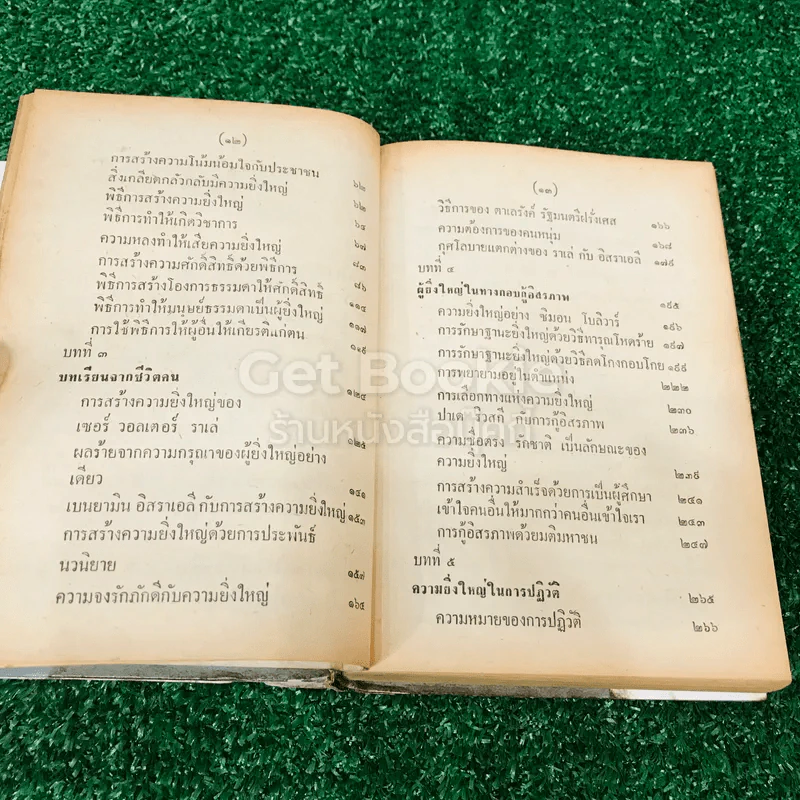 (๑๒)
การสร้างความโน้มน้อมใจกับประชาชน ๖๒
สิ่งเกลียดกลัวกลับมีความยิ่งใหญ่ ๖๒
พิธีการสร้างความยิ่งใหญ่ ๖๔
พิธีการทำให้เกิดวิชาการ ๖๗
ความหลงทำให้เสียความยิ่งใหญ่ ๘๓
การสร้างความศักดิ์สิทธิ์ด้วยพิธีการ ๘๖
พิธีการสร้างโองการธรรมดาให้ศักดิ์สิทธิ์ ๑๑๔
พิธีการทำให้มนุษย์ธรรมดาเป็นผู้ยิ่งใหญ่ ๑๑๗
การใช้พิธีการให้ผู้อื่นให้เกียรติแก่ตน ๑๑๙
บทที่ ๓
บทเรียนจากชีวิตคน ๑๒๔
การสร้างความยิ่งใหญ่ของ
เซอร์ วอลเตอร์ ราเล่ ๑๒๕
ผลร้ายจากความกรุณาของผู้ยิ่งใหญ่อย่าง
เดียว ๑๔๑
เบนยามิน อิสราเอลี กับการสร้างความยิ่งใหญ่ ๑๕๓
การสร้างความยิ่งใหญ่ด้วยการประพันธ์
นวนิยาย ๑๕๗
ความจงรักภักดีกับความยิ่งใหญ่ ๑๖๔
(๑๓)
วิธีการของ ตาเลรังค์ รัฐมนตรีฝรั่งเศส ๑๖๖
ความต้องการของคนหนุ่ม ๑๖๘
กุศโลบายแตกต่างของ ราเล่ กับ อิสราเอลี ๑๗๙
บทที่ ๔
ผู้ยิ่งใหญ่ในทางกอบกู้อิสรภาพ ๑๙๕
ความยิ่งใหญ่อย่าง ซิมอน โบลิวาร์ ๑๙๖
การรักษาฐานะยิ่งใหญ่ด้วยวิธีทารุณโหดร้าย ๑๙๗
การรักษาฐานะยิ่งใหญ่ด้วยวิธีคดโกงกอบโกย ๑๙๙
การพยายามอยู่ในตำแหน่ง ๒๒๒
การเลือกทางแห่งความยิ่งใหญ่ ๒๓๐
ปาเด รีวสกี กับการกู้อิสรภาพ ๒๓๖
ความซื่อตรง รักชาติ เป็นลักษณะของ
ความยิ่งใหญ่ ๒๓๙
การสร้างความสำเร็จด้วยการเป็นผู้ศึกษา ๒๔๑
เข้าใจคนอื่นให้มากกว่าคนอื่นเข้าใจเรา ๒๔๓
การกู้อิสรภาพด้วยมติมหาชน ๒๔๗
บทที่ ๕
ความยิ่งใหญ่ในการปฏิวัติ ๒๖๕
ความหมายของการปฏิวัติ ๒๖๖
Get Bookie
ร้านหนังสือมือสอง